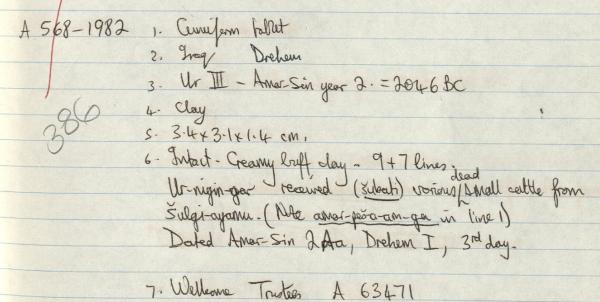 A 568-1982 1. Cuneiform tablet
2. Iraq Drehem
3. Ur III - Amar-Sin year 2. = 2046 BC
386
4. Clay
5. 3.4 x 3.1 x 1.4 cm.
6. Intact - Creamy buff clay - 9+7 lines.
Ur-nigin-gar received (šubati) various dead small cattle from
Šulgi-ayamu. (Note in line 1)
Dated Amar-Sin 2 Aa, Drehem I, 3rd day.
7. Wellcome Trustees A 63471